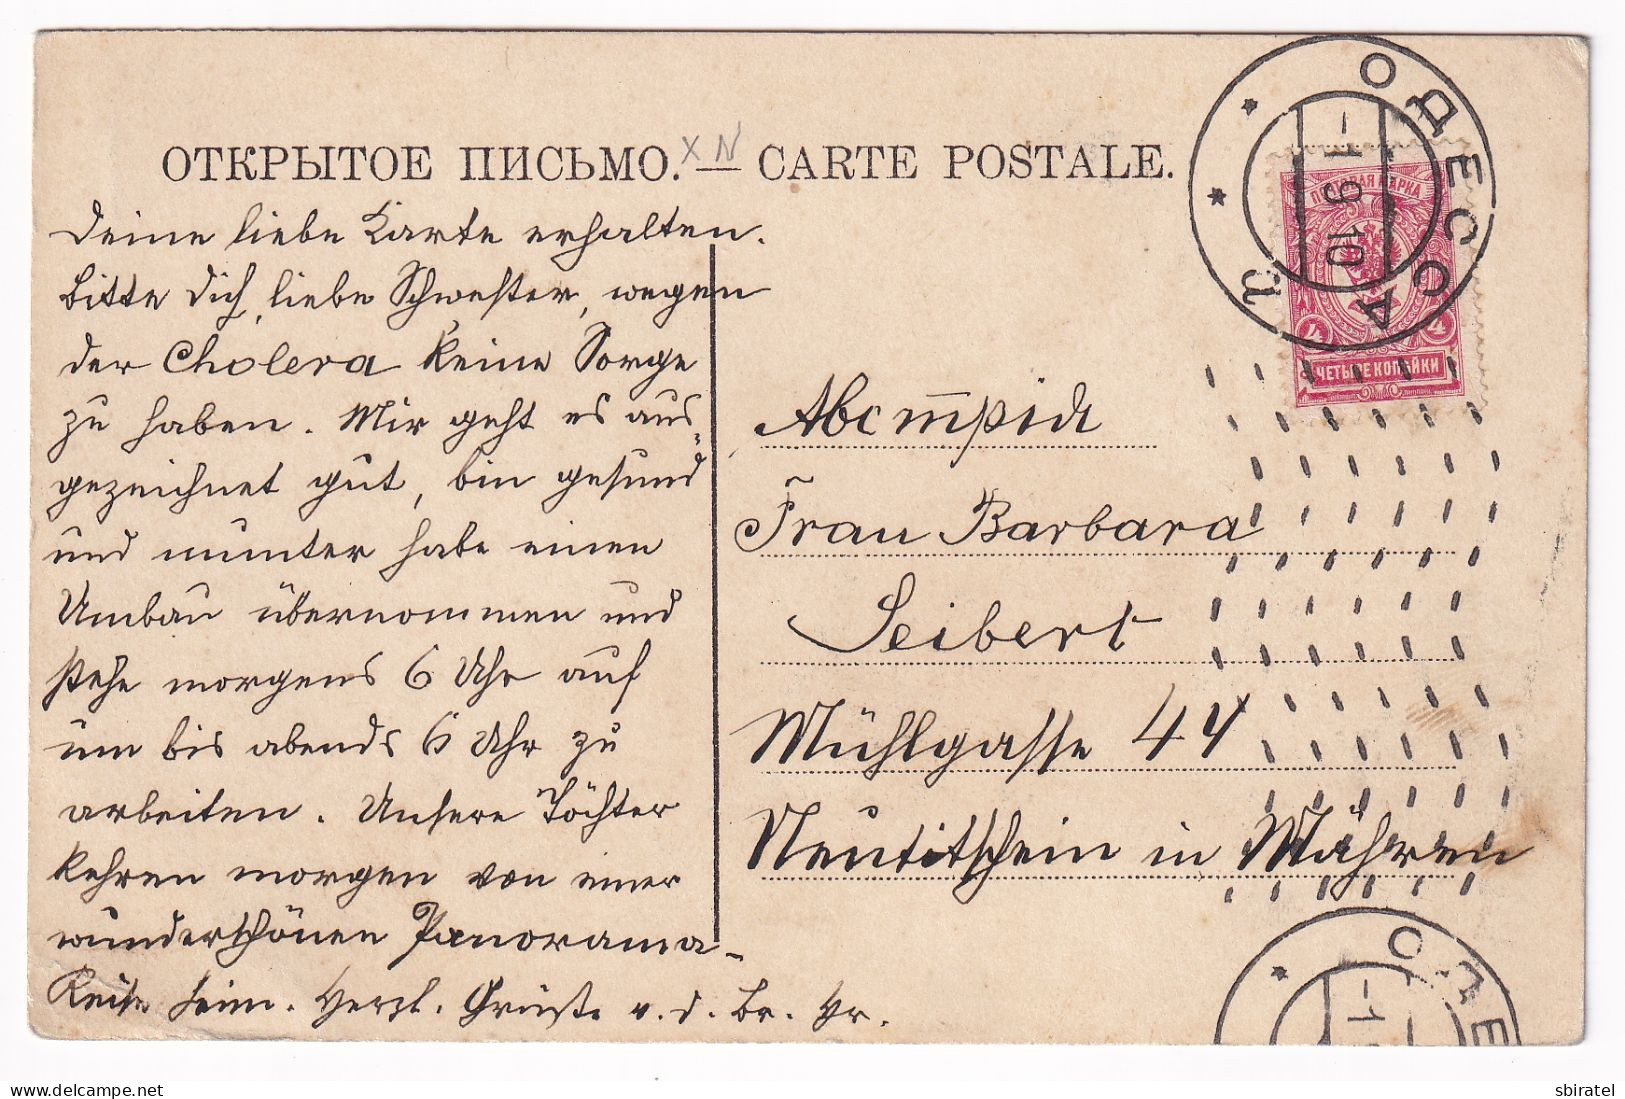 ОТКРЫТОЕ ПИСЬМО. — CARTE POSTALE.
X N
Deine liebe Karte erhalten.
Bitte Dich, liebe Schwester, wegen
der Cholera keine Sorge
zu haben. Mir geht es aus=
gezeichnet gut, bin gesund
und munter habe einen
Umbau übernommen und
stehe morgens 6 Uhr auf
um bis abends 6 Uhr zu
arbeiten. Unsere Töchter
kehren morgen von einer
wunderschönen Panorama-
Reise heim. Herzl. Grüsse v. d. Br.
ОДЕССА
-1 9 10
й
ПОЧТОВАЯ МАРКА
4 4
ЧЕТЫРЕ КОПЕЙКИ
Австрія
Frau Barbara
Seibert
Mühlgasse 44
Neutitschein in Mähren
ОДЕ
-1
sbiratel